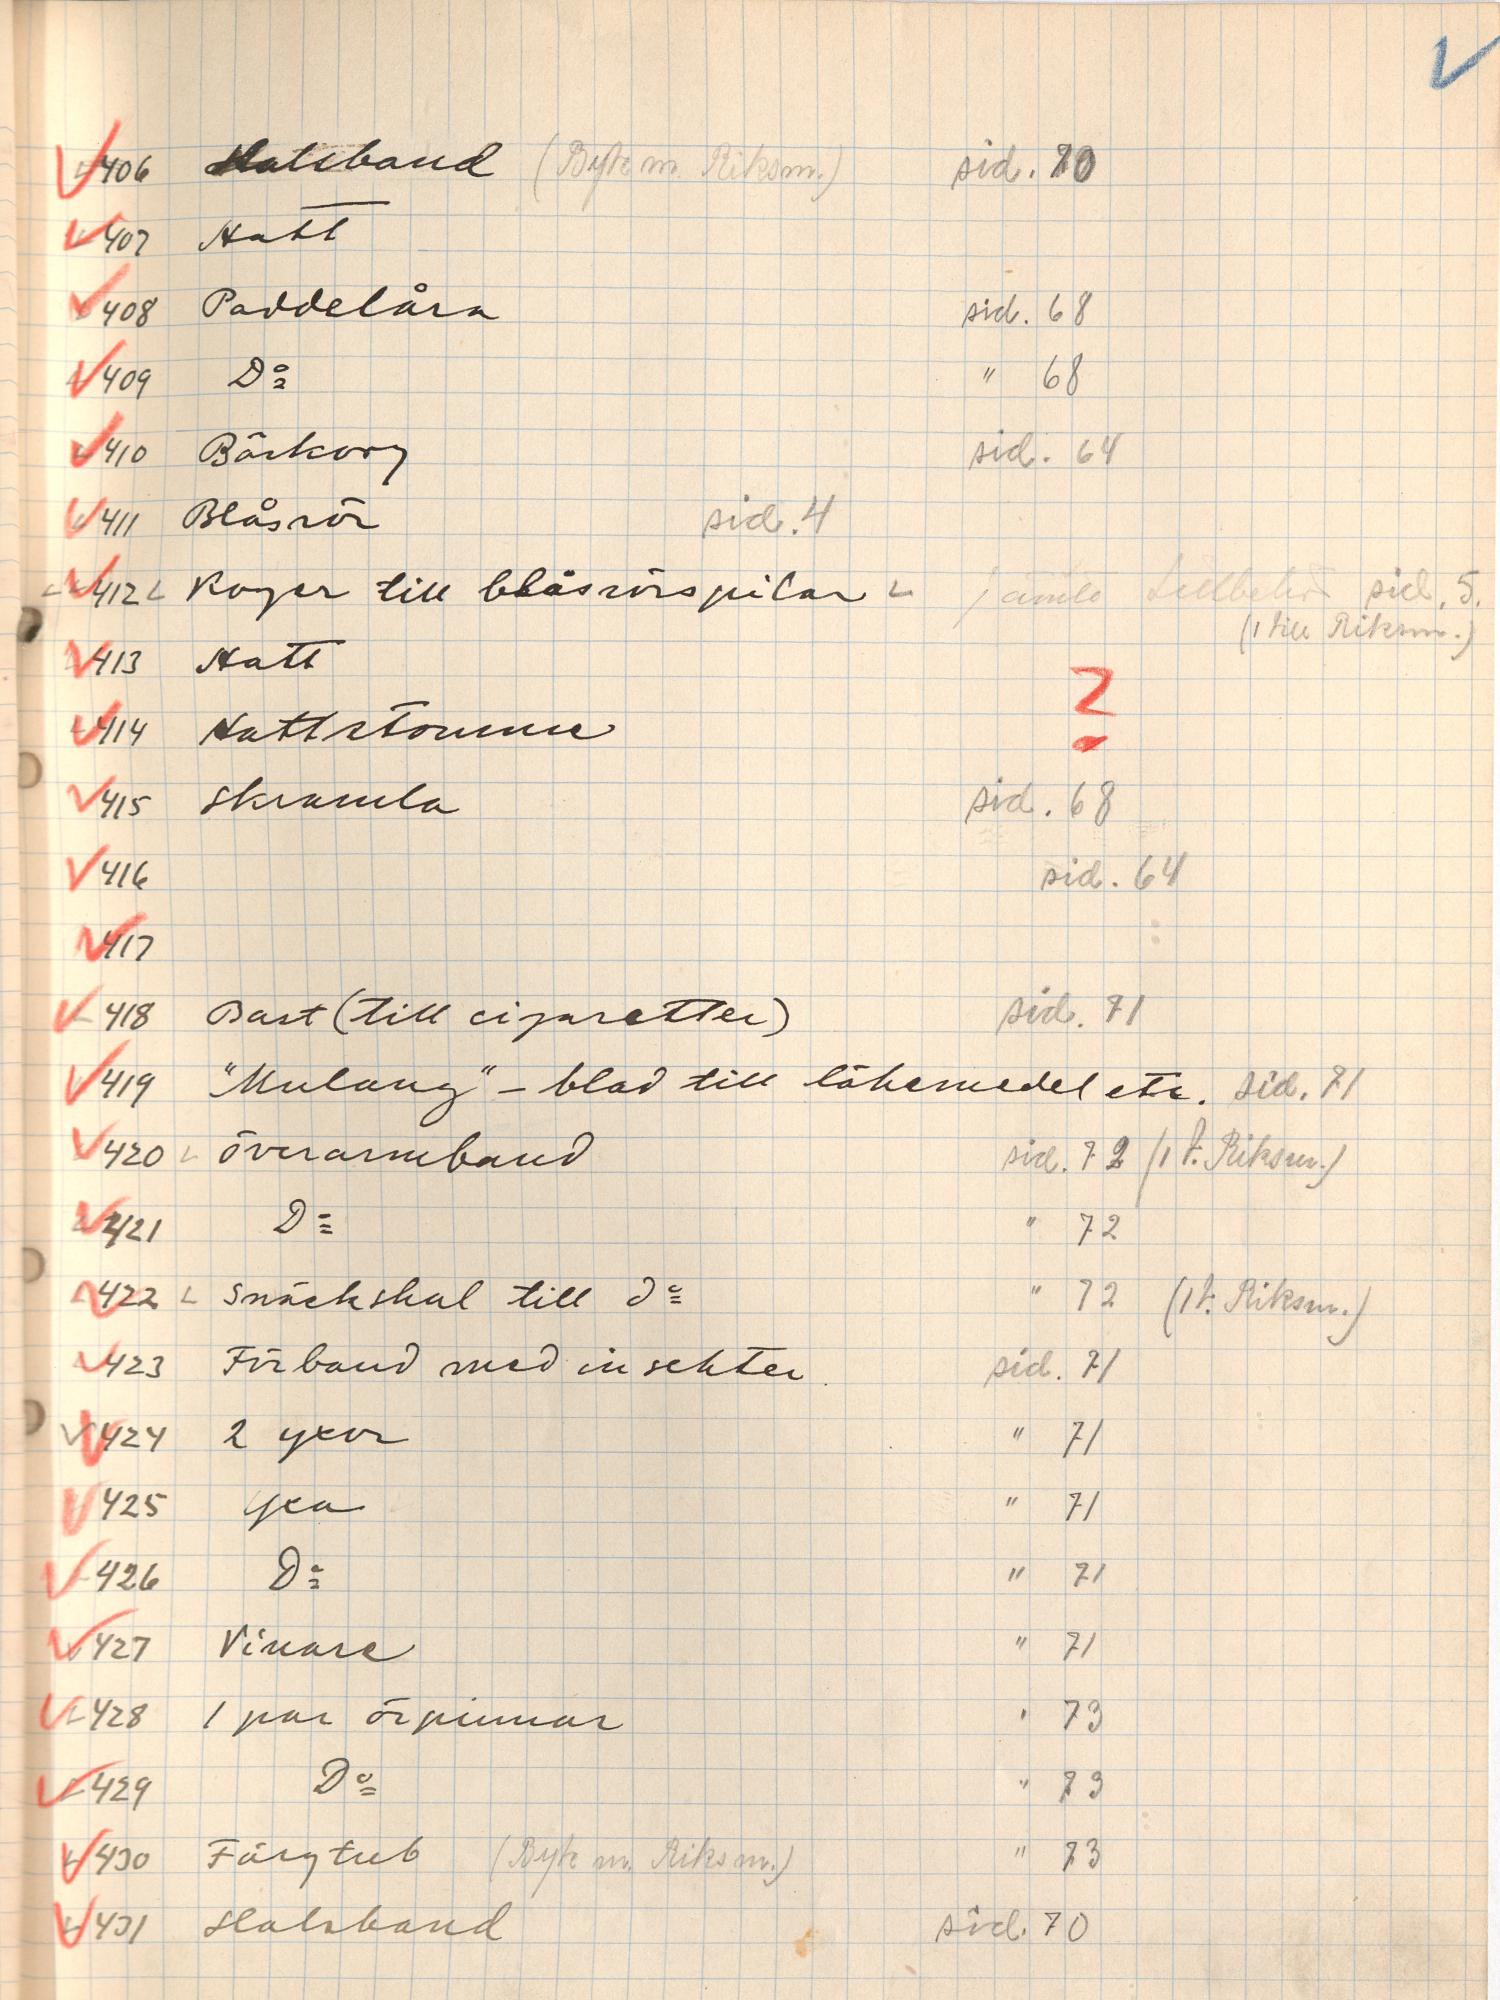 406 Halsband (Byte m. Riksm.) sid. 70
407 Hatt
408 Paddelåra sid. 68
409 Do " 68
410 Bärkorg sid. 64
411 Blåsrör sid. 4
412 Koger till blåsrörspilar jämte tillbehör sid. 5.
(1 till Riksm.)
413 Hatt
414 Hattstomme ?
415 Skramla sid. 68
416 sid. 64
417
418 Bast (till cigaretter) sid. 71
419 "Mulang" - blad till läkemedel etc. sid. 71
420 överarmband sid. 72 (1 t. Riksm.)
421 Do " 72
422 Snäckskal till do " 72 (1 t. Riksm.)
423 Förband med insekter sid. 71
424 2 yxor " 71
425 yxa " 71
426 Do " 71
427 Vinare " 71
428 1 par örpinnar " 73
429 Do " 73
430 Färgtub (Byte m. Riksm.) " 73
431 Halsband sid. 70